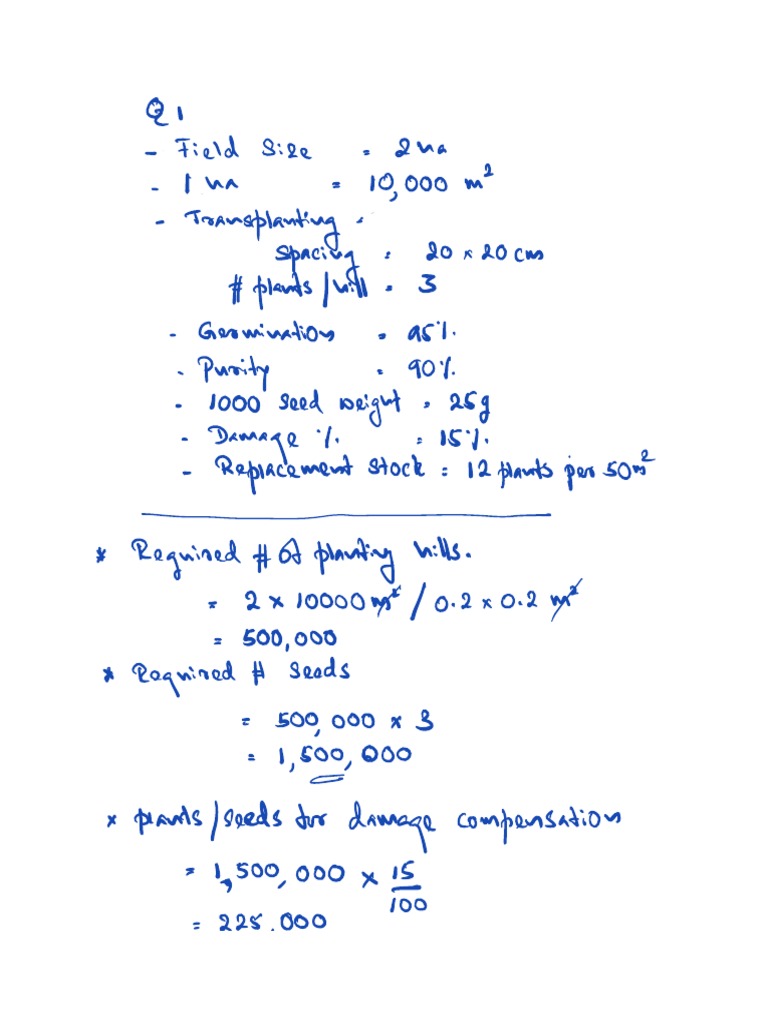 Q1
- Field Size = 2 ha
- 1 ha = 10,000 m²
- Transplanting =
Spacing = 20 × 20 cm
# plants / hill = 3
- Germination = 95%
- Purity = 90%
- 1000 seed weight = 25g
- Damage % = 15%
- Replacement Stock = 12 plants per 50m²
* Required # of planting hills.
= 2 × 10000 m² / 0.2 × 0.2 m²
= 500,000
* Required # seeds
= 500,000 × 3
= 1,500,000
* plants/seeds for damage compensation
= 1,500,000 × 15/100
= 225.000